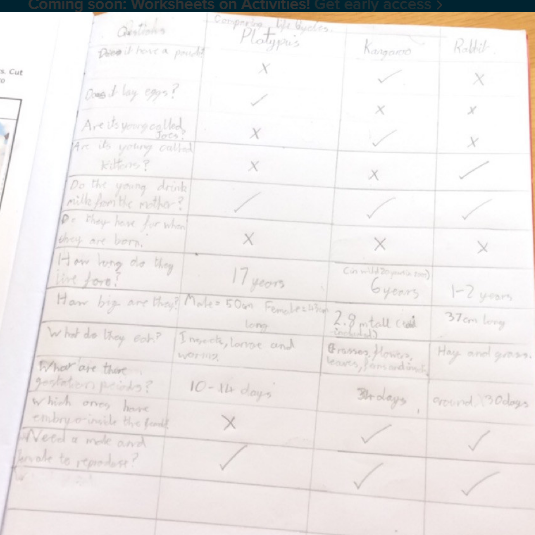 Coming soon: Worksheets on Activities! Get early access >
s. Cut
Comparing life cycles.
Platypus Kangaroo Rabbit
Does it have a pouch? X ✓ X
Does it lay eggs? ✓ X X
Are its young called Joeys? X ✓ X
Are its young called
kittens? X X ✓
Do the young drink
milk from the mother? ✓ ✓ ✓
Do they have fur when
they are born. X X X
How long do they
live for? 17 years 6 years 1-2 years
How big are they? Male = 50cm Females
long 2.8 m tall 37cm long
What do they eat? Insects, larvae and
worms Grasses, flowers,
leaves, Hay and grass.
What are their
gestation periods? 10-14 days 34 days around 30 days
Which ones have
embryo inside the X ✓ ✓
Need a male and
female to ✓ ✓ ✓